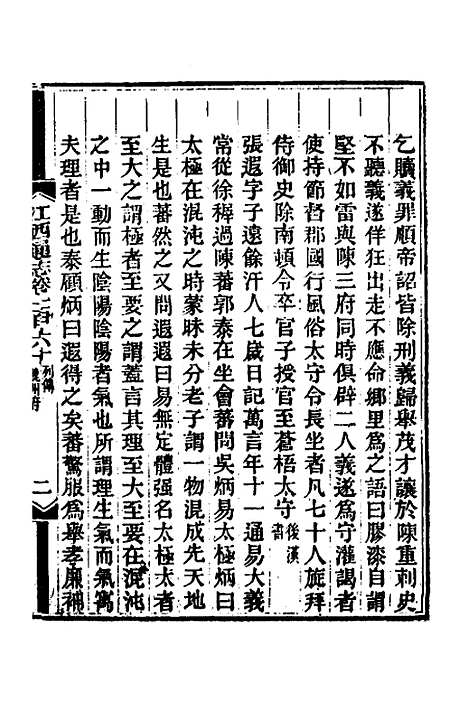 乞贖義罪順帝詔皆除刑義歸舉茂才讓於陳重刺史
不聽義遂佯狂出走不應命鄉里爲之語曰膠漆自謂
堅不如雷與陳三府同時俱辟二人義遂爲守灌謁者
使持節督郡國行風俗太守令長坐者凡七十人旋拜
侍御史除南頓令卒官子授官至蒼梧太守後漢書
張遐字子遠餘汗人七歲日記萬言年十一通易大義
常從徐穉過陳蕃郭泰在坐會蕃問吳炳易太極炳曰
太極在混沌之時蒙昧未分老子謂一物混成先天地
生是也蕃然之又問遐遐曰易無定體强名太極太者
至大之謂極者至要之謂蓋言其理至大至要在混沌
之中一動而生陰陽陰陽者氣也所謂理生氣而氣寓
夫理者是也泰顧炳曰遐得之矣蕃驚服爲舉孝廉補
江西通志卷一百六十 列傳 饒州府 二